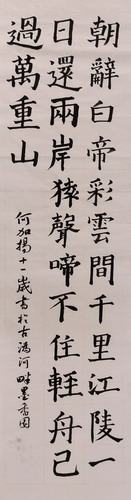 朝辭白帝彩雲間千里江陵一
日還兩岸猿聲啼不住輕舟已
過萬重山
何加揚十一歲書於古湯河畔墨香園